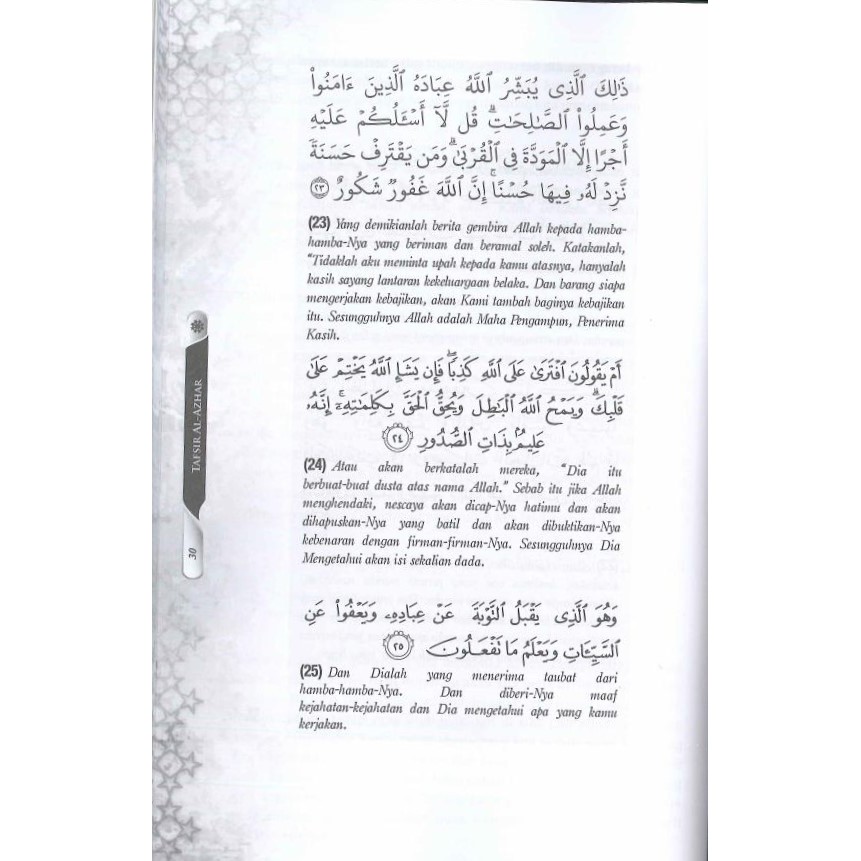 ذَٰلِكَ ٱلَّذِى يُبَشِّرُ ٱللَّهُ عِبَادَهُ ٱلَّذِينَ ءَامَنُوا۟
وَعَمِلُوا۟ ٱلصَّـٰلِحَـٰتِ ۗ قُل لَّآ أَسْـَٔلُكُمْ عَلَيْهِ
أَجْرًا إِلَّا ٱلْمَوَدَّةَ فِى ٱلْقُرْبَىٰ ۗ وَمَن يَقْتَرِفْ حَسَنَةً
نَّزِدْ لَهُۥ فِيهَا حُسْنًا ۚ إِنَّ ٱللَّهَ غَفُورٌ شَكُورٌ ٢٣
(23) Yang demikianlah berita gembira Allah kepada hamba-
hamba-Nya yang beriman dan beramal soleh. Katakanlah,
"Tidaklah aku meminta upah kepada kamu atasnya, hanyalah
kasih sayang lantaran kekeluargaan belaka. Dan barang siapa
mengerjakan kebajikan, akan Kami tambah baginya kebajikan
itu. Sesungguhnya Allah adalah Maha Pengampun, Penerima
Kasih.
أَمْ يَقُولُونَ ٱفْتَرَىٰ عَلَى ٱللَّهِ كَذِبًا ۖ فَإِن يَشَإِ ٱللَّهُ يَخْتِمْ عَلَىٰ
قَلْبِكَ ۗ وَيَمْحُ ٱللَّهُ ٱلْبَـٰطِلَ وَيُحِقُّ ٱلْحَقَّ بِكَلِمَـٰتِهِۦٓ ۚ إِنَّهُۥ
عَلِيمٌۢ بِذَاتِ ٱلصُّدُورِ ٢٤
(24) Atau akan berkatalah mereka, "Dia itu
berbuat-buat dusta atas nama Allah." Sebab itu jika Allah
menghendaki, nescaya akan dicap-Nya hatimu dan akan
dihapuskan-Nya yang batil dan akan dibuktikan-Nya
kebenaran dengan firman-firman-Nya. Sesungguhnya Dia
Mengetahui akan isi sekalian dada.
وَهُوَ ٱلَّذِى يَقْبَلُ ٱلتَّوْبَةَ عَنْ عِبَادِهِۦ وَيَعْفُوا۟ عَنِ
ٱلسَّيِّـَٔاتِ وَيَعْلَمُ مَا تَفْعَلُونَ ٢٥
(25) Dan Dialah yang menerima taubat dari
hamba-hamba-Nya. Dan diberi-Nya maaf
kejahatan-kejahatan dan Dia mengetahui apa yang kamu
kerjakan.
TAFSIR AL-AZHAR
30